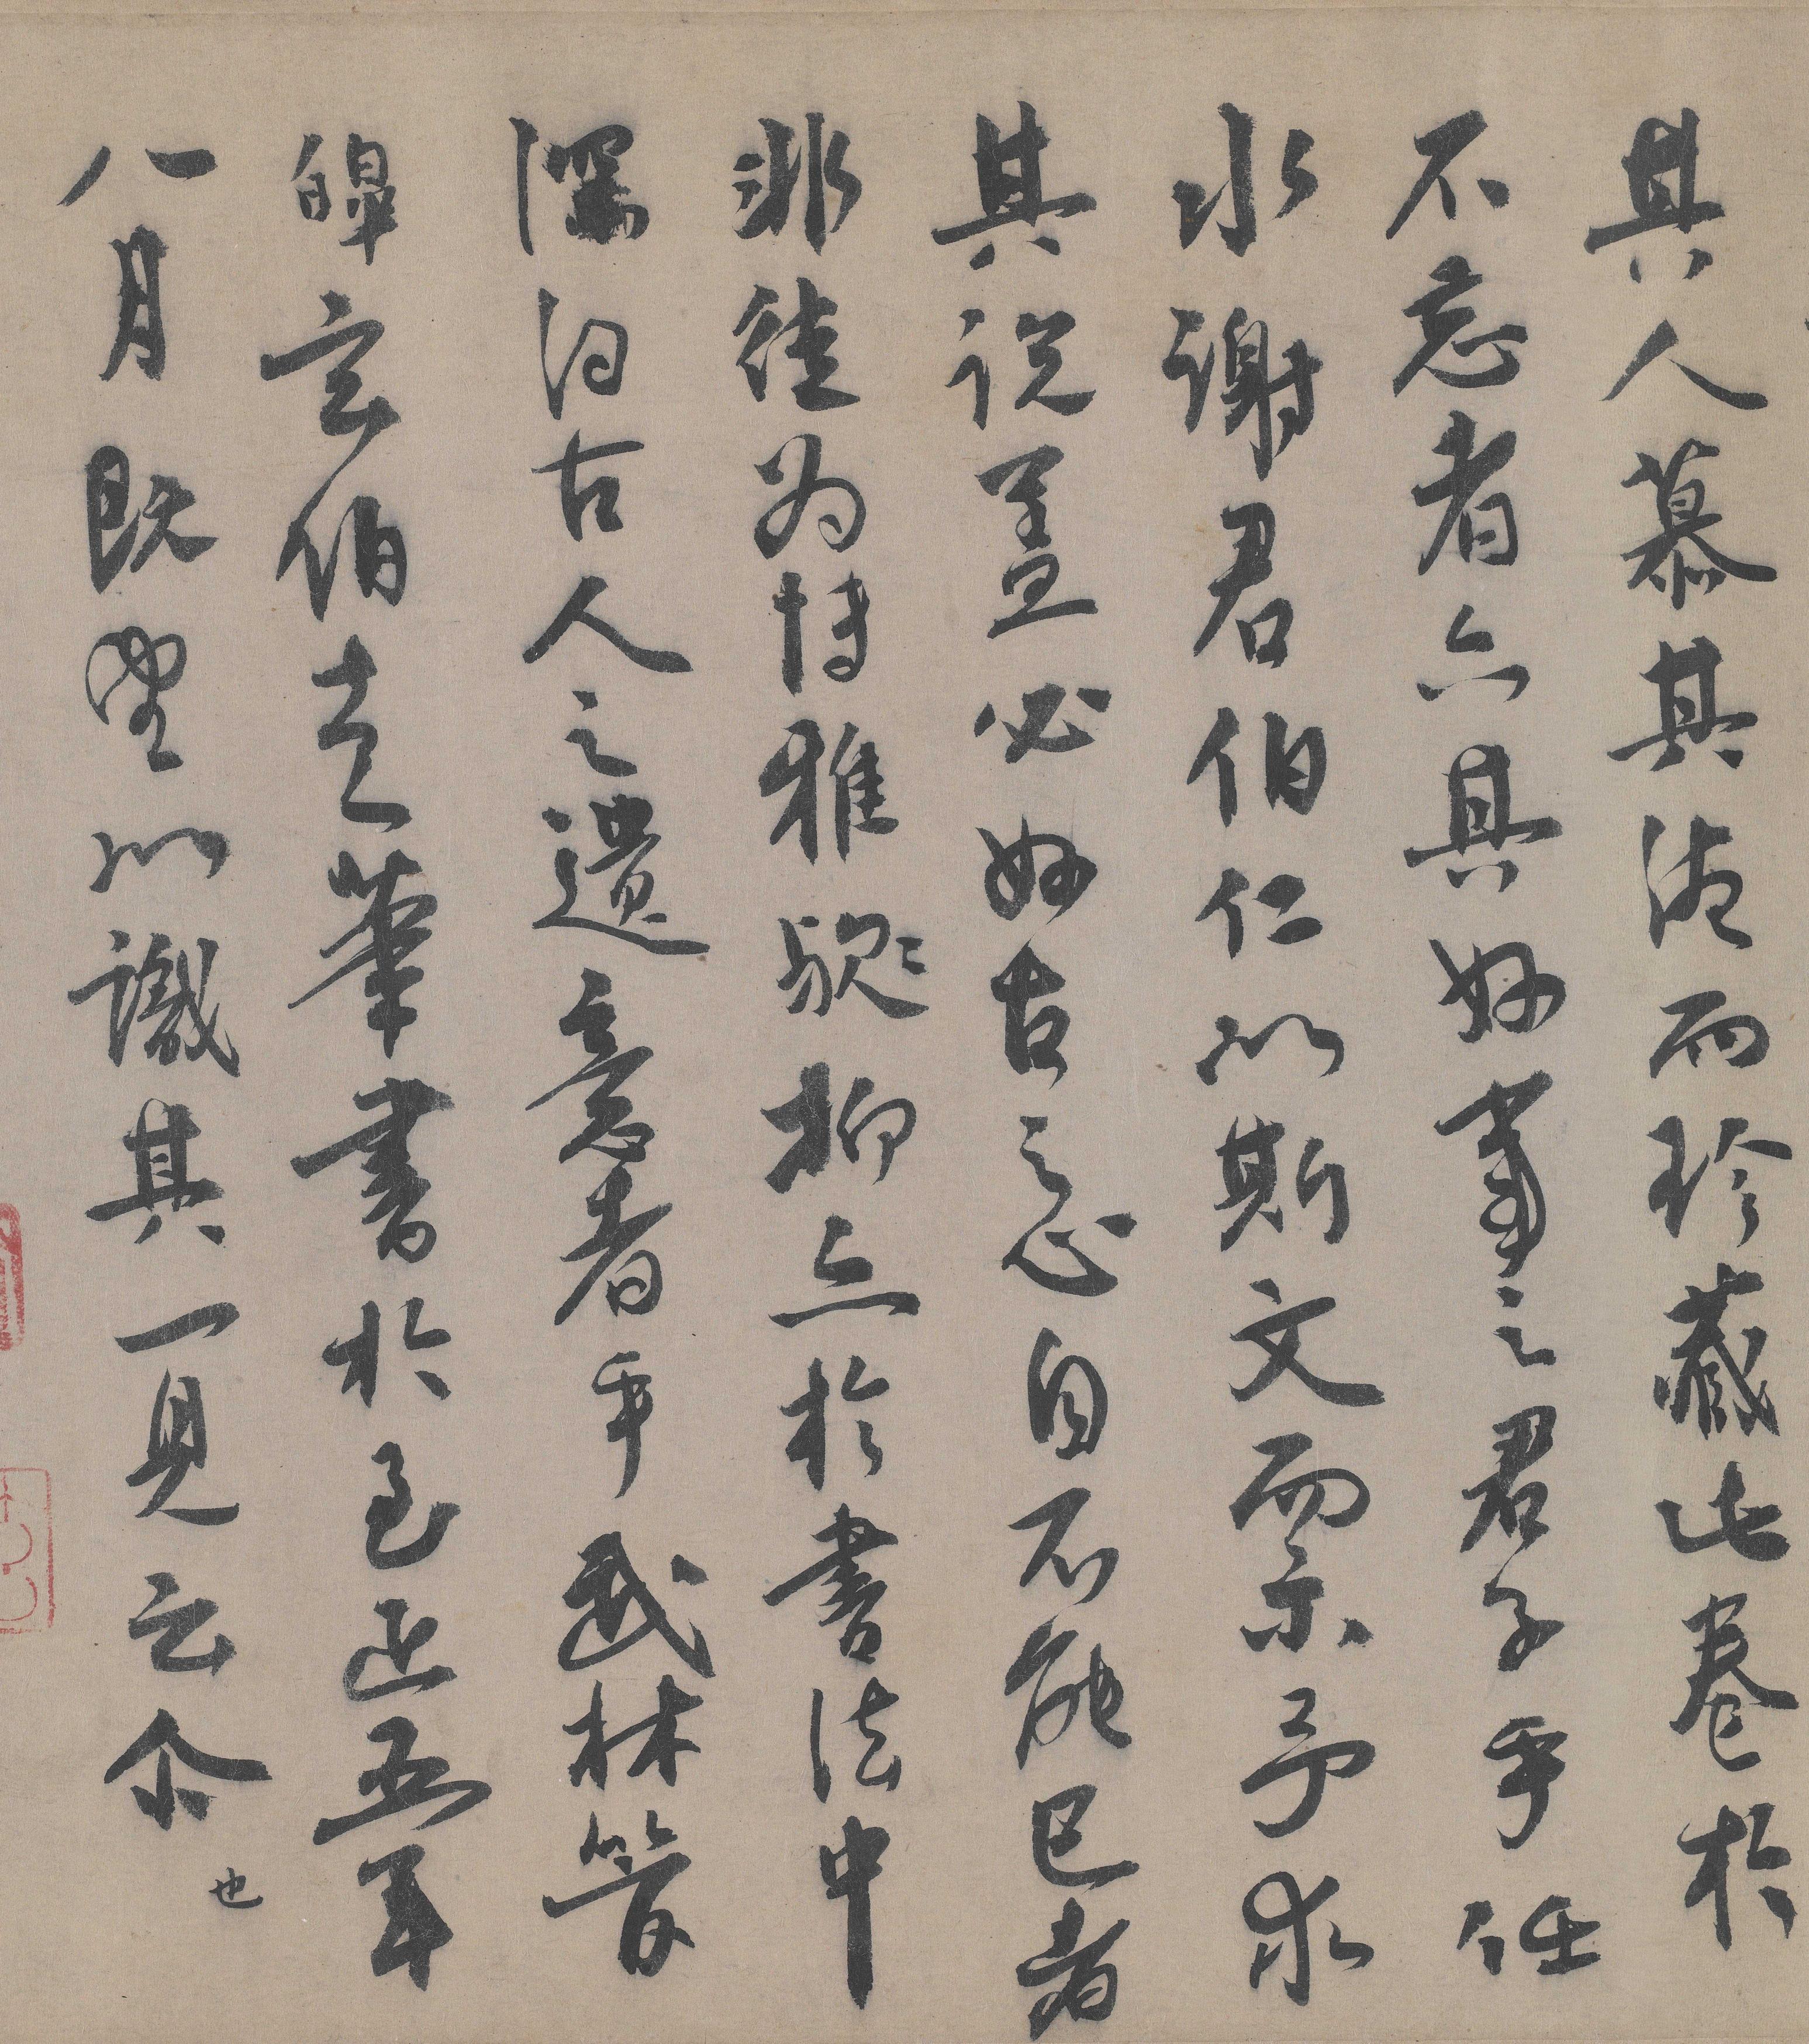 其人慕其德而珍藏此卷於
不忘者亦其好事之君子乎任
水謝君伯仁以斯文而示予求
其説蓋必好古之心自不能已者
非徒為博雅抑亦於書法中
深得古人之遺意者乎武林管
皞玄伯走筆書於至正五年
八月既望以識其一見云尒也